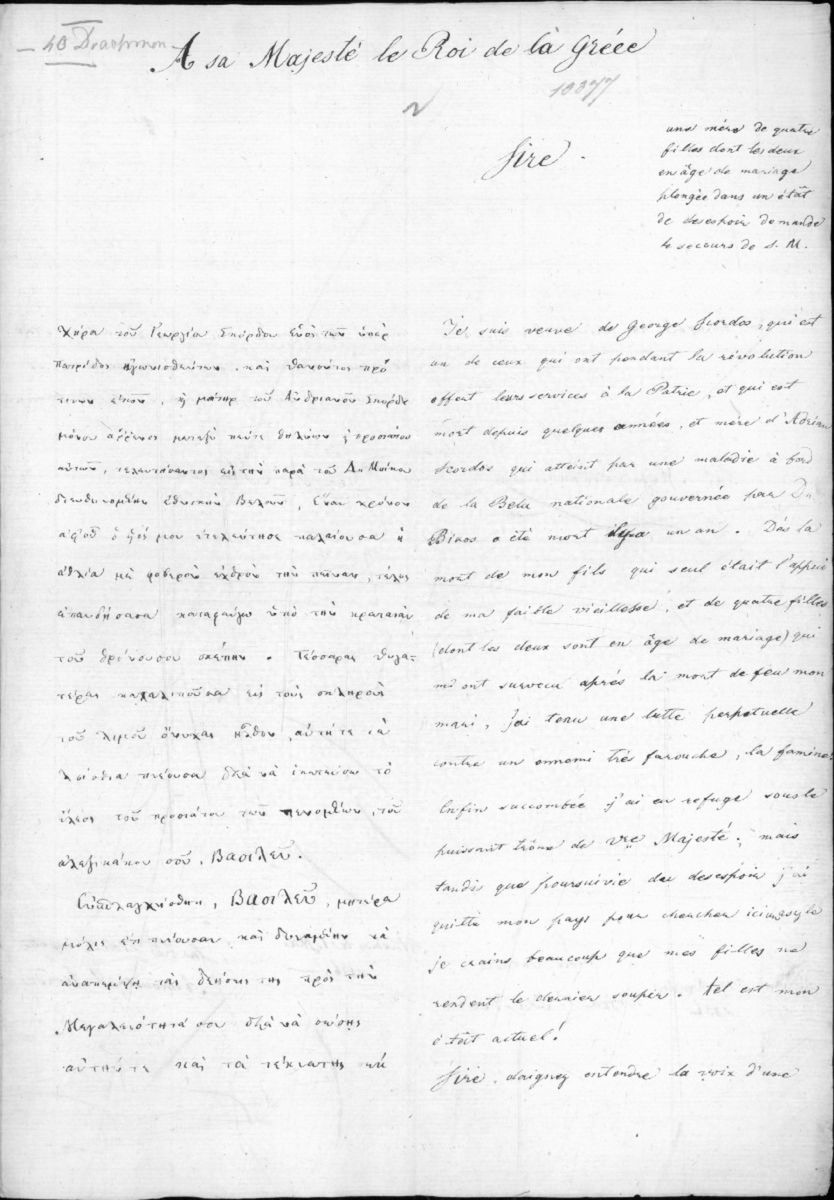 40 Drachmen
A sa Majesté le Roi de la Gréce
10077
Sire.
une mére de quatre
filles dont les deux
en âge de mariage
plongée dans un état
de desespoir demande
le secours de S. M.
Χήρα τοῦ Γεωργίου Σκόρδου ἑνὸς τῶν ὑπὲρ
Πατρίδος ἀγωνισθέντων, καὶ θανόντος πρὸ
τινων ἐτῶν, ἡ μήτηρ τοῦ Ἀνδριανοῦ Σκόρδου
μόνου ἄῤῥενος μεταξὺ πέντε
τελευτήσαντος εἰς τὴν παρὰ τοῦ
Βελοῦ, εἶναι χρόνον
ἀφ' οὗ ὁ υἱός μου ἐτελεύτησε παλαίουσα ἡ
ἀθλία μὲ φοβερὸν ἐχθρὸν τὴν πεῖναν, τέλος
ἀπαυδήσασα καταφεύγω ὑπὸ τὴν κραταιὰν
τοῦ θρόνου σου σκέπην. Τέσσαρας θυγα-
τέρας καταλιποῦσα εἰς τοὺς σκληροὺς
τοῦ λιμοῦ ὄνυχας ἦλθον, αὐτήτε τὰ
λοίσθια πνέουσα διὰ νὰ ἱκετεύσω τὸ
ἔλεος τοῦ προστάτου τῶν πενομένων, τοῦ
ἀλεξικάκου σου, Βασιλεῦ.
Εὐσπλαγχνίσθητι, Βασιλεῦ, μητέρα
μόλις ἐπιπνέουσαν, καὶ δυναμένην νὰ
ἀναπέμψῃ τὰς δεήσεις της πρὸς τὴν
Μεγαλειότητά σου διὰ νὰ σώσῃς
αὐτήντε καὶ τὰ τέκνα της
Je suis veuve de George Scordos, qui est
un de ceux qui ont pendant la révolution
offert leurs services à la Patrie, et qui est
mort depuis quelques années, et mère d'Adrian
Scordos qui attéint par une maladie à bord
de la Belu nationale gouvernée par
a été mort il y a un an. Dés la
mort de mon fils qui seul était l'appui
de ma faible vieillesse, et de quatre filles
(dont les deux sont en âge de mariage) qui
m'ont survecu aprés la mort de feu mon
mari, j'ai tenu une lutte perpetuelle
contre un ennemi trés farouche, la famine.
Enfin succombée j'ai eu refuge sous le
puissant trône de Vre Majesté; mais
tandis que poursuivie du desespoir j'ai
quitté mon pays pour chercher ici un asyle
je crains beaucoup que mes filles ne
rendent le dernier soupir. tel est mon
état actuel!
Sire, daignez entendre la voix d'une